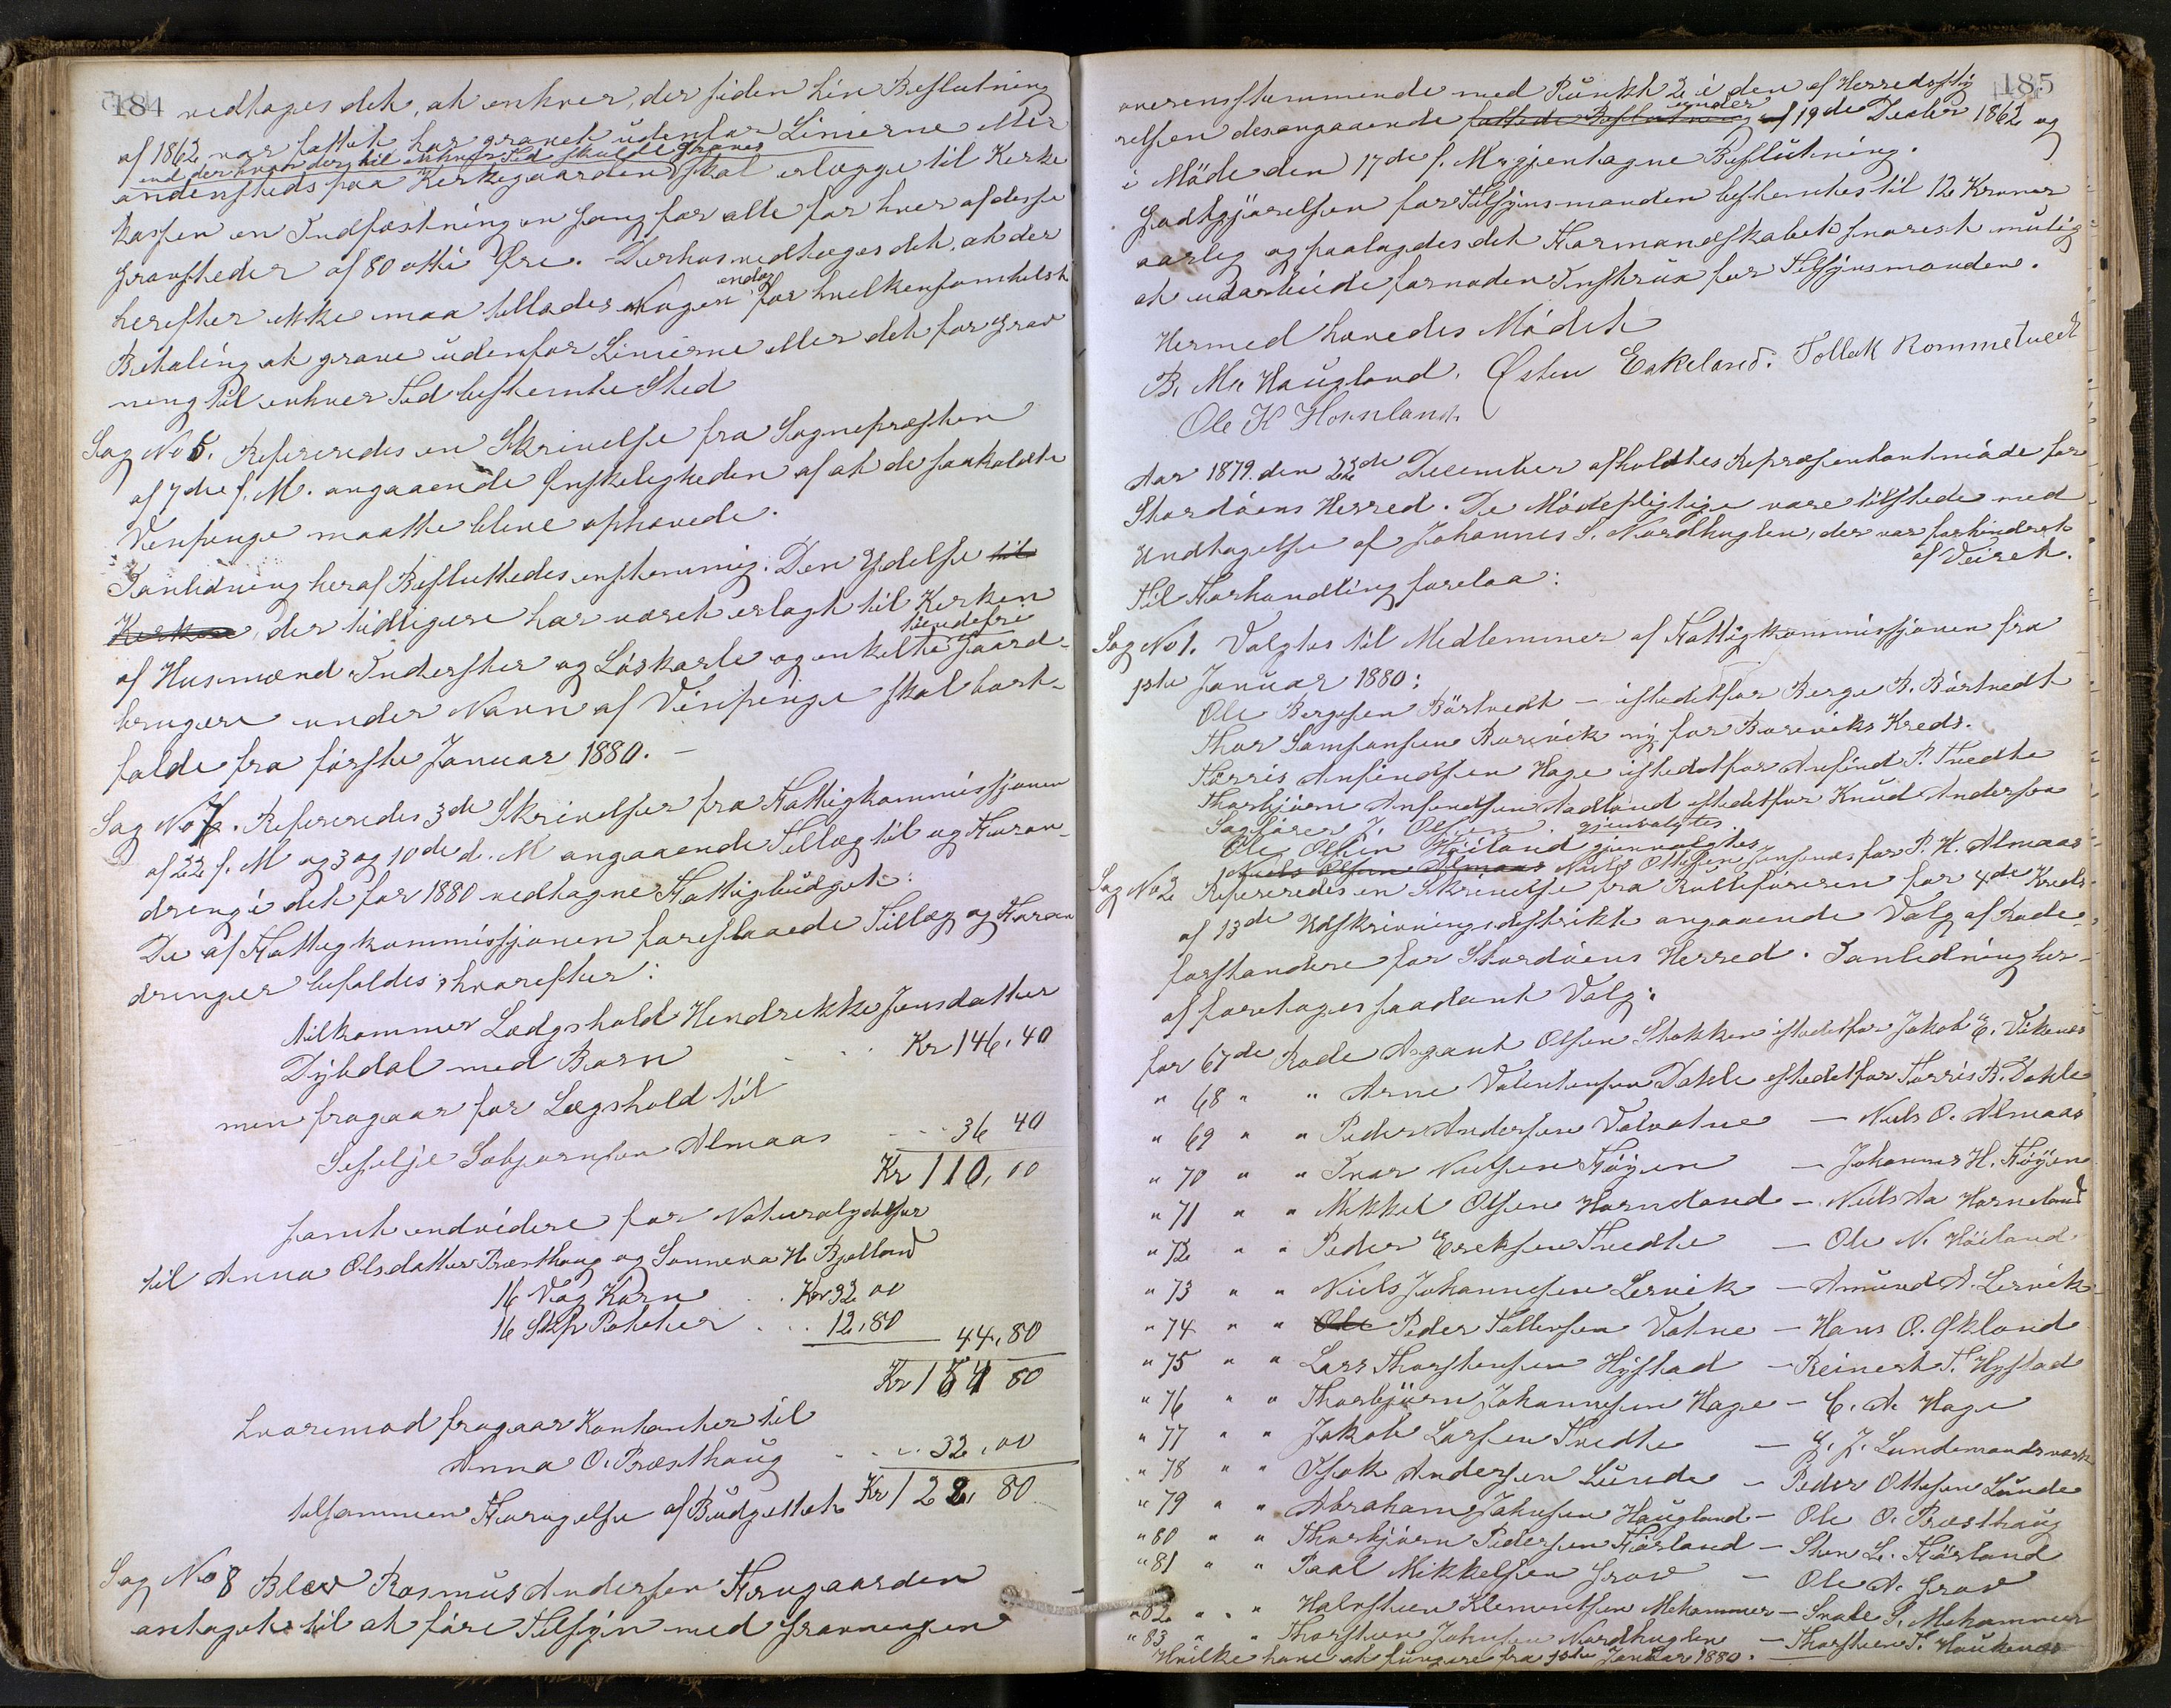 184
vedtoges det, at enhver, der siden hin Beslutning
af 1862 var fattet har gravet udenfor Linierne eller
end der hvor der til enhver Tid skulde graves
andensteds paa Kirkegaarden skal erlægge til Kirke
kassen en Indfæstning en Gang for alle for hver af disse
Gravsteder af 80 otti Øre. Derhos vedtoges det, at der
herefter ikke maa tillades Nogen endog for hvilkensomhelst
Betaling at grave udenfor Linierne eller det for Grav
ning til enhver Tid bestemte Sted
Sag No 5. Refereredes en Skrivelse fra Sognepresten
af 7de f. M. angaaende Ønskeligheden af at de saakaldte
Vinpenge maatte blive ophævede.
I anledning heraf Besluttedes enstemmig: Den Ydelse til
Kirken, der tidligere har været erlagt til Kirken
af Husmænd Inderster og Løskarle og enkelte tiendefri Gaard-
brugere under Navn af Vinpenge skal bort-
falde fra første Januar 1880. —
Sag No 7. Refereredes 3de Skrivelser fra Fattigkommissjonen
af 22 f. M og 3 og 10de d. M angaaende Tillæg til og Foran-
dring i det for 1880 vedtagne Fattigbudget:
De af Fattigkommissjonen foreslaaede Tillæg og Foran
dringer bifaldes; hvorefter:
tilkommer Lægdshold Hendrikke Jensdatter
Dybdal med Barn . . . Kr 146,40
men fragaar for Lægshold til
Siselje Salfornsen Almaas . . . 36 40
Kr 110,00
samt endvidere for Naturalydelser
til Anna Olsdatter Præsthaug og Sønneva H. Bjelland
16 Vog Korn . . Kr 32 00
16 Skp Poteter . . . 12,80
44,80
Kr 154 80
hvorimod fragaar Kontanter til
Anna O. Præsthaug . . . 32,00
tilsammen Forøgelse af Budgettet Kr 122, 80
Sag No 8 Blev Rasmus Andersen Frugaarden
antaget til at føre Tilsyn med Gravningen
185
overensstemmende med Punkt 2 i den af Herredssty
relsen desangaaende fattede Beslutning af under 19de Decbr 1862 og
i Møde den 17de f. M. gjentagne Beslutning.
Godtgjørelsen for Tilsynsmanden bestemtes til 12 Kroner
aarlig og paalagdes det Formandskabet snarest mulig
at udarbeide fornøden Instrux for Tilsynsmanden.
Hermed hævedes Mødet
B. M. Haugland. Østen Eskeland. Tollak Rommetvedt
Ole H Hornland.
Aar 1879. den 22de December afholdtes Repræsentantmøde for
Stordøens Herred. De Mødepligtige vare tilstede med
Undtagelse af Johannes S. Nordhuglen, der var forhindret
af Veiret.
Til Forhandling forelaa:
Sag No 1. Valgtes til Medlemmer af Fattigkommissjonen fra
1ste Januar 1880:
Ole Bergesen Børtvedt — istedetfor Berge B. Børtvedt
Thor Samsonsen Borevik ny for Boreviks Kreds.
Tørris Anfindsen Hage istedetfor Anfind P. Tvedte
Thorbjørn Anfindsen Aadland istedetfor Knud Andersen
Sagfører J. Olsen gjenvalgtes
Ole Olsen Høiland gjenvalgtes
Niels Olsen Almaas Niels Ottesen for P. H. Almaas
Sag No 2 Refereredes en Skrivelse fra Rulleføreren for 4de Kreds
af 13de Udskrivningsdistrikt angaaende Valg af Rode-
forstandere for Stordøens Herred. I anledning her-
af foretoges saadant Valg:
for 67de Rode Asgaut Olsen Stokken istedetfor Jakob E. Vikenes
" 68 " " Arne Valentinsen Dahle istedetfor Tørris B. Dahle
" 69 " " Peder Andersen Valvatne — Niels O. Almaas
" 70 " " Ivar Nielsen Føyen — Johannes H. Føyen
" 71 " " Mikkel Olsen Horneland — Niels Aa Horneland
" 72 " " Peder Eriksen Tvedte — Ole N. Høiland
" 73 " " Niels Johannesen Lervik — Amund A. Lervik
" 74 " " Ole Peder Tollevsen Vatne — Hans O. Økland
" 75 " " Lars Thorstensen Hystad — Reinert T. Hystad
" 76 " " Thorbjørn Johannesen Hage — E. A. Hage
" 77 " " Jakob Larsen Tvedte — G. J. Lundemandsværk
" 78 " " Isak Andersen Lunde — Peder Ottesen Lunde
" 79 " " Abraham Johnsen Haugland — Ole O. Præsthaug
" 80 " " Thorbjørn Pedersen Førland — Sten L. Førland
" 81 " " Paal Mikkelsen Grov — Ole A. Grov
" 82 " " Halvsteen Klementsen Mehammer — S. Mehammer
" 83 " " Thorsten Johnsen Nordhuglen — Thorsten T. Haukenæs
Hvilke have at fungere fra 1ste Januar 1880.